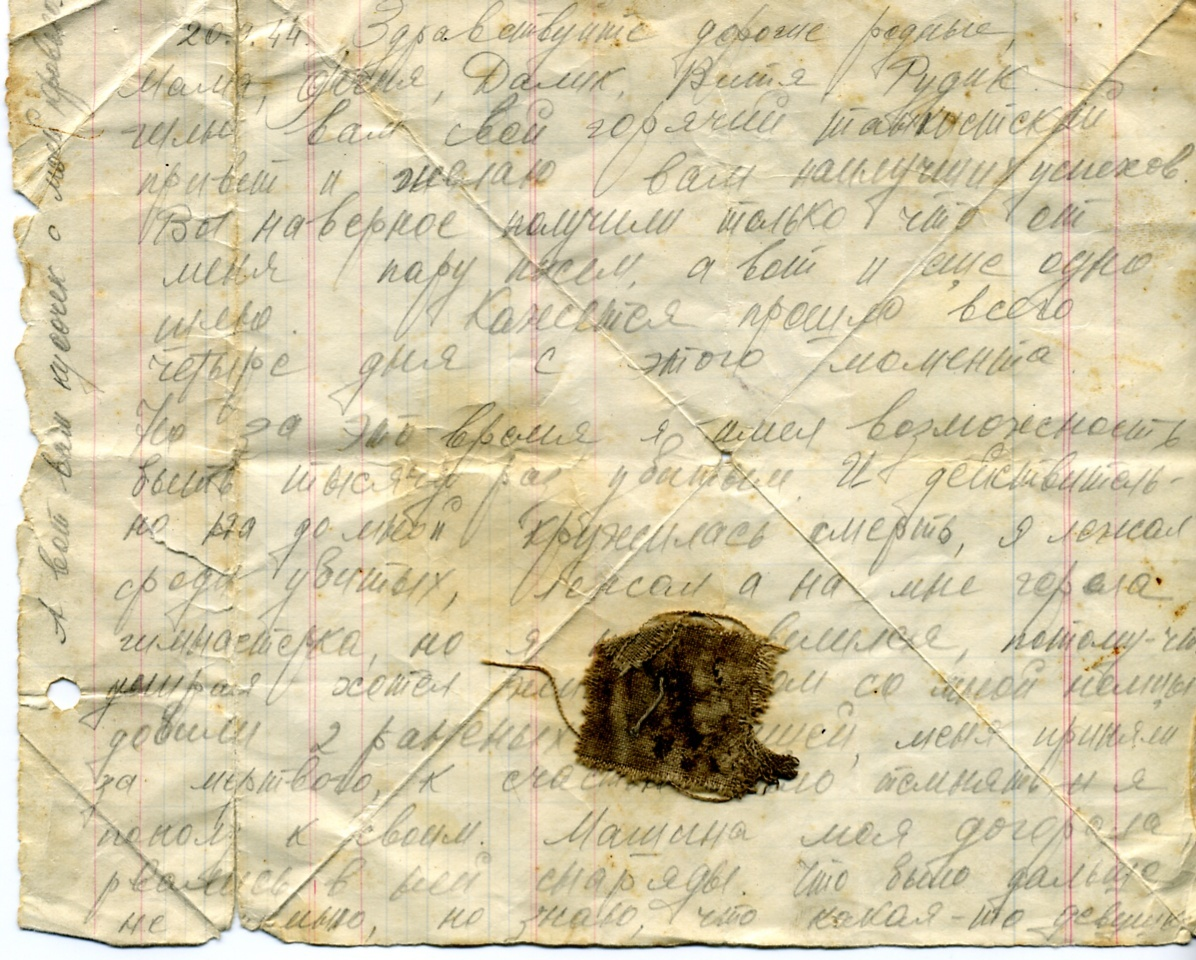 20. .44. Здравствуйте дорогие родные,
мама, Феня, Далик, Витя Рудик.
шлю вам свой горячий танкистский
привет и желаю вам наилучших успехов.
Вы наверное получили только что от
меня пару писем, а вот и еще одно
шлю. Кажется прошло всего
четыре дня с этого момента.
Но за это время я имел возможность
быть тысячу раз убитым. И действитель-
но надо мной кружилась смерть, я лежал
среди убитых, лежал а на мне горела
гимнастерка, но я вился, потому-что
умирая хотел со мной немцы
добили 2 раненых шей, меня приняли
за мертвого, к счас ло темнять и я
пополз к своим. Машина моя догорала,
рвались в ней снаряды. Что было дальше
не но, но знаю, что какая-то девушка
А вот вам кусочек с моей кровью